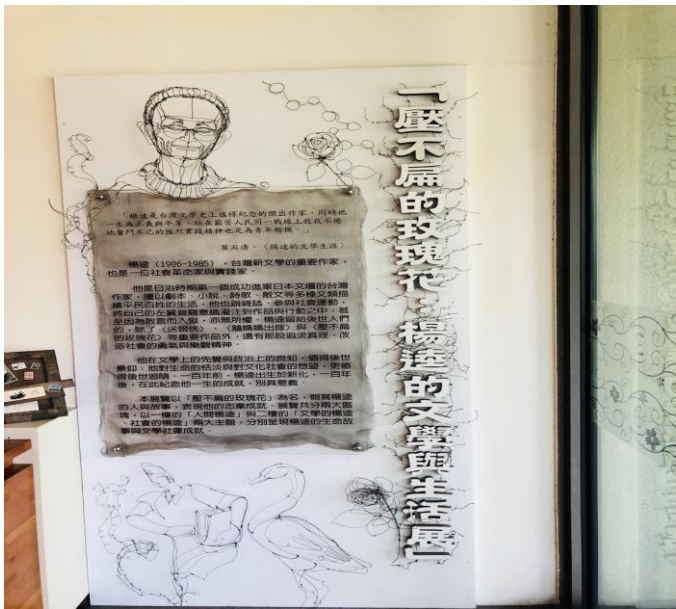 「壓不扁的玫瑰花：楊逵的文學與生活展」
「楊逵是台灣文學史上值得紀念的傑出作家，同時他
一生為正義與平等，站在弱勢人民同一戰線上孜孜不倦
地奮鬥不已的強烈實踐精神也足為青年楷模。」
葉石濤，〈楊逵的文學生涯〉
楊逵（1906-1985），台灣新文學的重要作家，
也是一位社會革命家與實踐家。
他是日治時期第一個成功進軍日本文壇的台灣
作家，擅以劇本、小說、詩歌、散文等多種文類描
繪平民百姓的生活，他也辦雜誌、參與社會運動，
將自己的左翼普羅意識灌注到作品與行動之中，甚
至因為敢言而入獄，亦無所懼。楊逵留給後世人們
的，除了〈送報伕〉、〈鵝媽媽出嫁〉與〈壓不扁
的玫瑰花〉等重要作品外，還有那股追求真理、改
造社會的勇氣與樂觀精神。
他在文學上的先覺與政治上的真知，值得後世
景仰，他對生命的恬淡與對文化社會的想望，更值
得後世追隨。一百年前，楊逵出生於新化，一百年
後，在此紀念他一生的成就，別具意義。
本展覽以「壓不扁的玫瑰花」為名，側寫楊逵
的人與故事，表現他的志業成就。展覽共分兩大區
塊，以一樓的「人間楊逵」與二樓的「文學的楊逵
、社會的楊逵」兩大主題，分別呈現楊逵的生命故
事與文學社運成就。